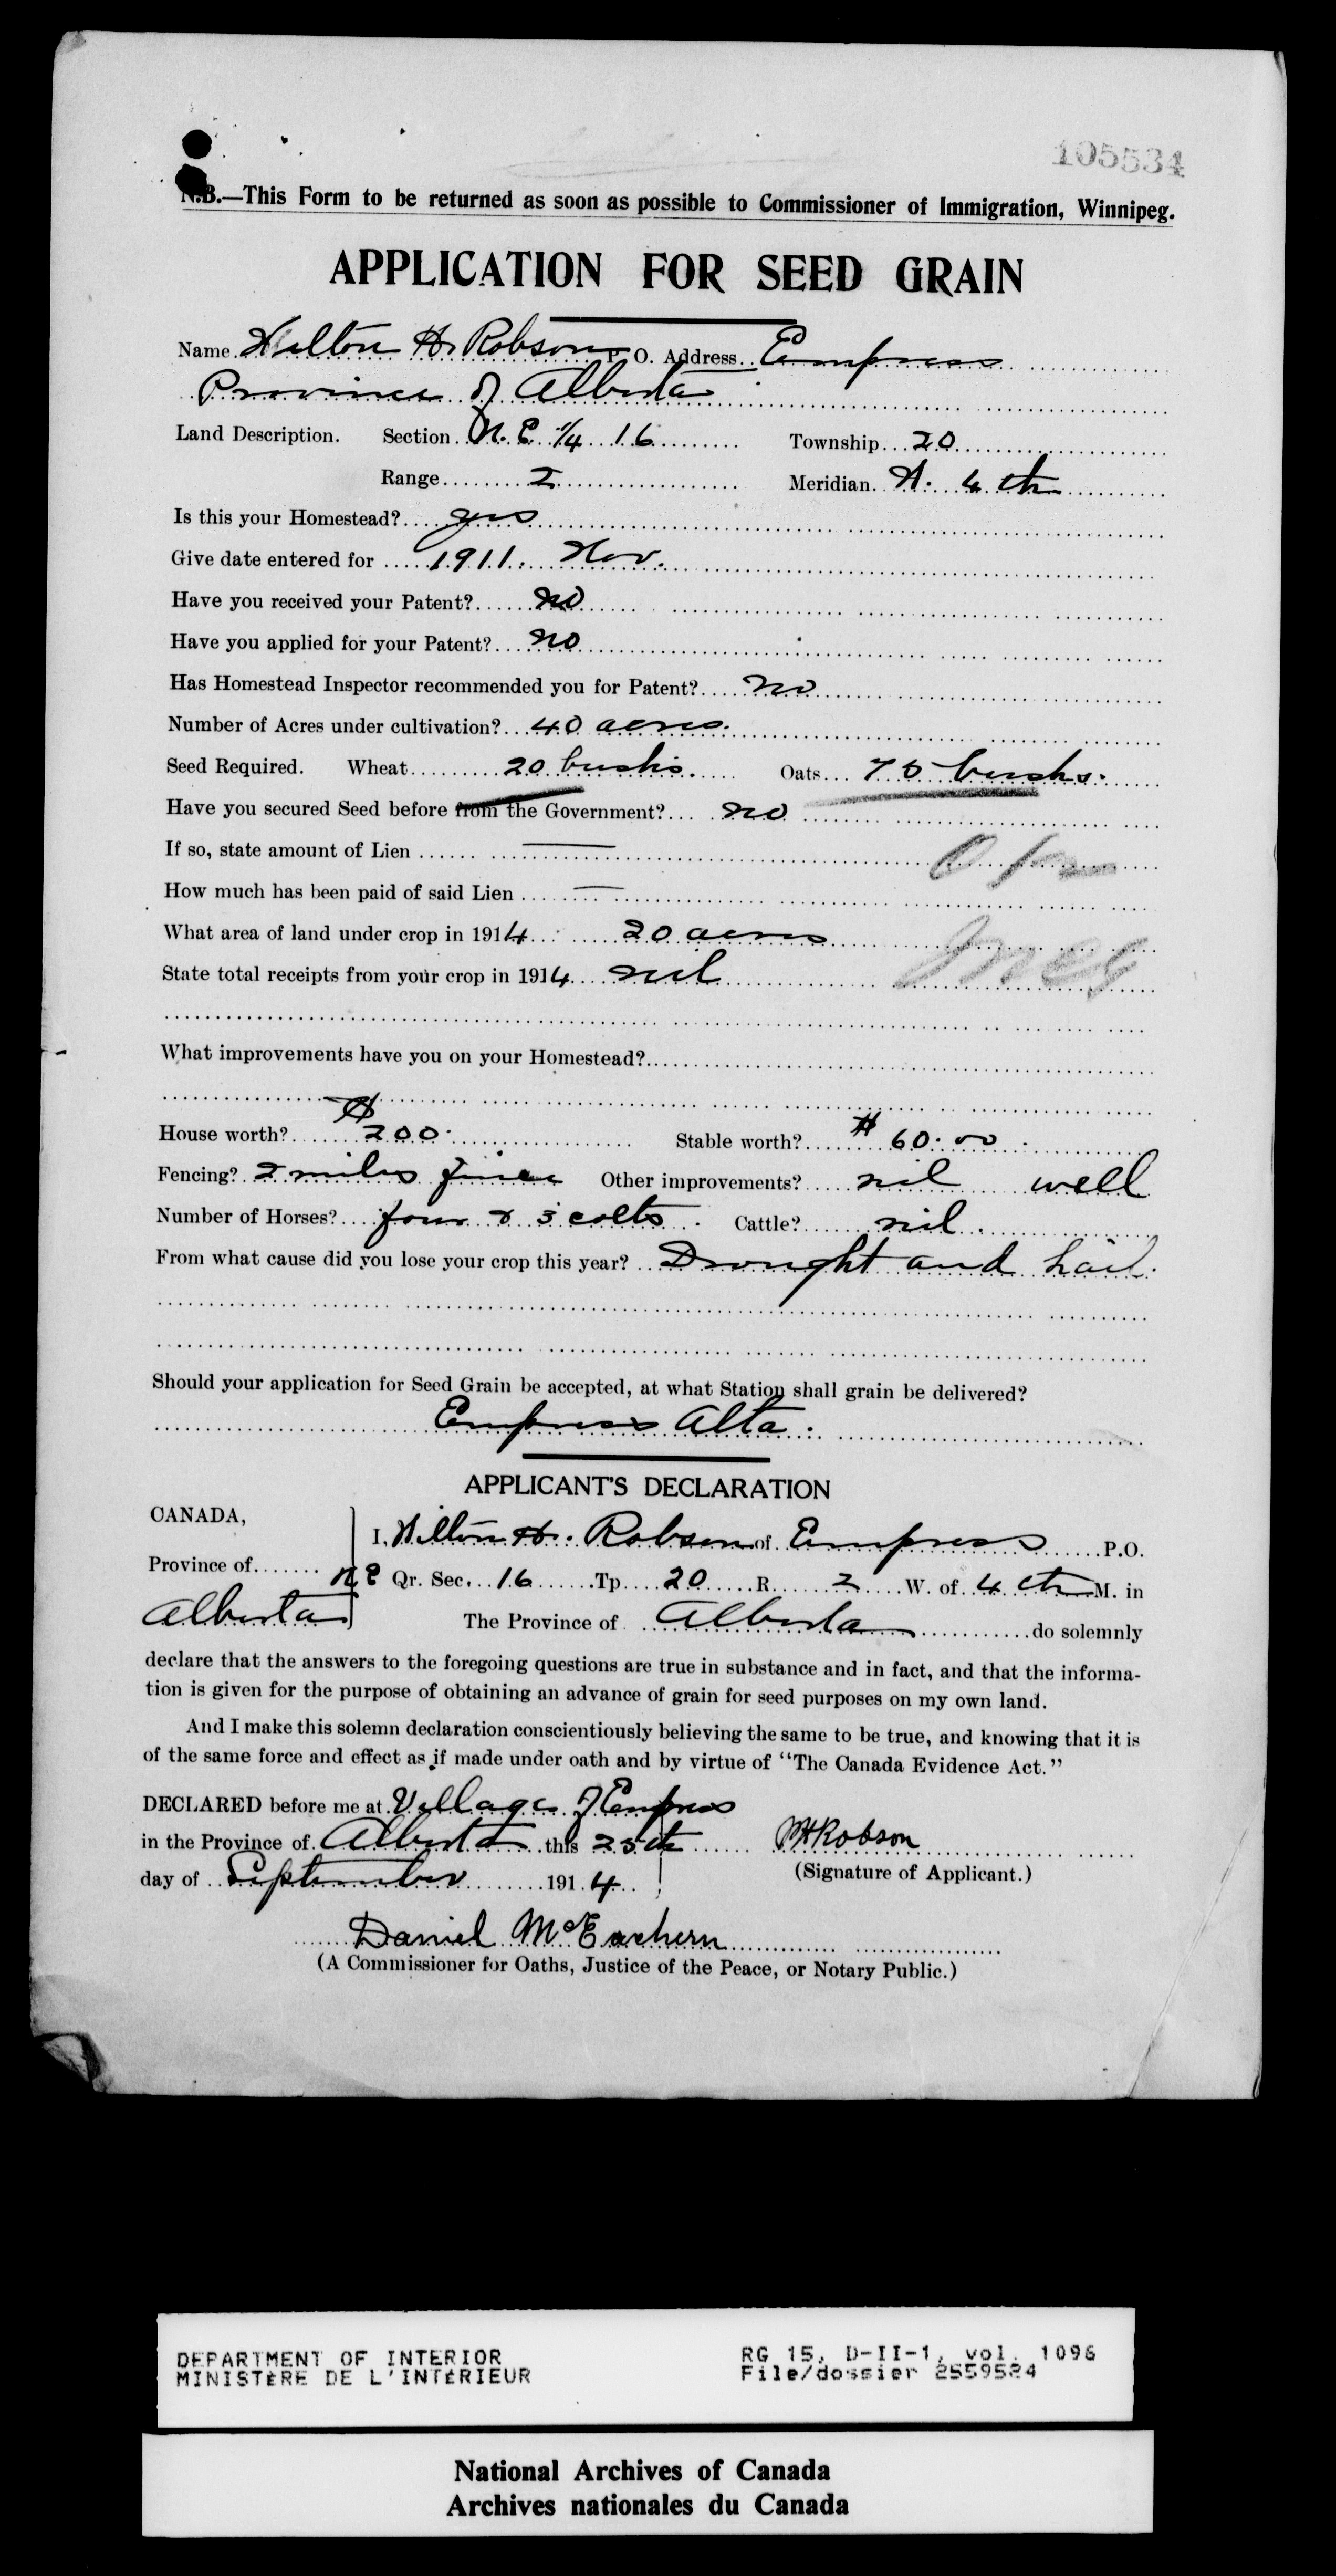 105534
N.B.—This Form to be returned as soon as possible to Commissioner of Immigration, Winnipeg.
APPLICATION FOR SEED GRAIN
Name Wilton H. Robson P. O. Address Empress
Province of Alberta
Land Description. Section N. E. 1/4 16 Township 20
Range 2 Meridian W. 4th
Is this your Homestead? yes
Give date entered for 1911. Nov.
Have you received your Patent? no
Have you applied for your Patent? no
Has Homestead Inspector recommended you for Patent? no
Number of Acres under cultivation? 40 acres.
Seed Required. Wheat 20 bushs. Oats 75 bushs.
Have you secured Seed before from the Government? no
If so, state amount of Lien —
How much has been paid of said Lien —
What area of land under crop in 1914 20 acres
State total receipts from your crop in 1914 nil
What improvements have you on your Homestead?
House worth? $200. Stable worth? $60.00
Fencing? 2 miles Other improvements? nil well
Number of Horses? four & 3 colts Cattle? nil.
From what cause did you lose your crop this year? Drought and hail.
Should your application for Seed Grain be accepted, at what Station shall grain be delivered?
Empress Alta.
APPLICANT'S DECLARATION
CANADA,
I, Wilton H. Robson of Empress P.O.
Province of NE Qr. Sec. 16 Tp. 20 R. 2 W. of 4th M. in
Alberta The Province of Alberta do solemnly
declare that the answers to the foregoing questions are true in substance and in fact, and that the informa-
tion is given for the purpose of obtaining an advance of grain for seed purposes on my own land.
And I make this solemn declaration conscientiously believing the same to be true, and knowing that it is
of the same force and effect as if made under oath and by virtue of "The Canada Evidence Act."
DECLARED before me at Village of Empress
in the Province of Alberta this 25th WHRobson
day of September 1914 (Signature of Applicant.)
Daniel McEachern
(A Commissioner for Oaths, Justice of the Peace, or Notary Public.)
DEPARTMENT OF INTERIOR RG 15, D-II-1, vol. 1096
MINISTÈRE DE L'INTÉRIEUR File/dossier 2559524
National Archives of Canada
Archives nationales du Canada